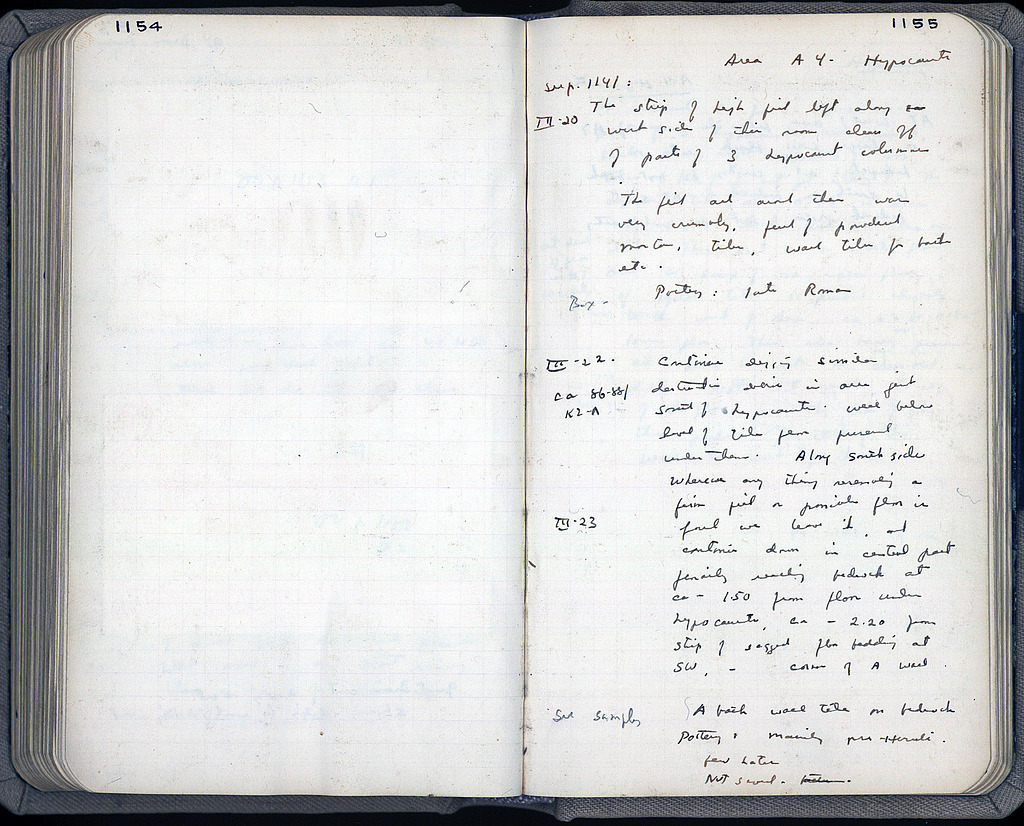 1154
1155
Area A 4 - Hypocaust
see p. 1141:
The strip of high fill left along
III-20
west side of this room clears off
of parts of 3 hypocaust columns
The fill and around them was
very crumbly, full of powdered
mortar, tiles, wall tiles for bath
etc.
Pottery: late Roman
Box -
III-22. Continue digging similar
ca 86-88/ destruction debris in area just
K2-A south of hypocausts. well below
level of tile floor present
under them. Along south side
wherever any thing resembling a
firm fill or possible floor is
III-23 found we leave it, and
continue down in central part
finally reaching bedrock at
ca - 1.50 from floor under
hypocausts, ca - 2.20 from
strip of sagged floor bedding at
SW, - corner of A wall.
See samples A bath wall tile on bedrock
Pottery: mainly pre-Heruli.
few later
Not saved.